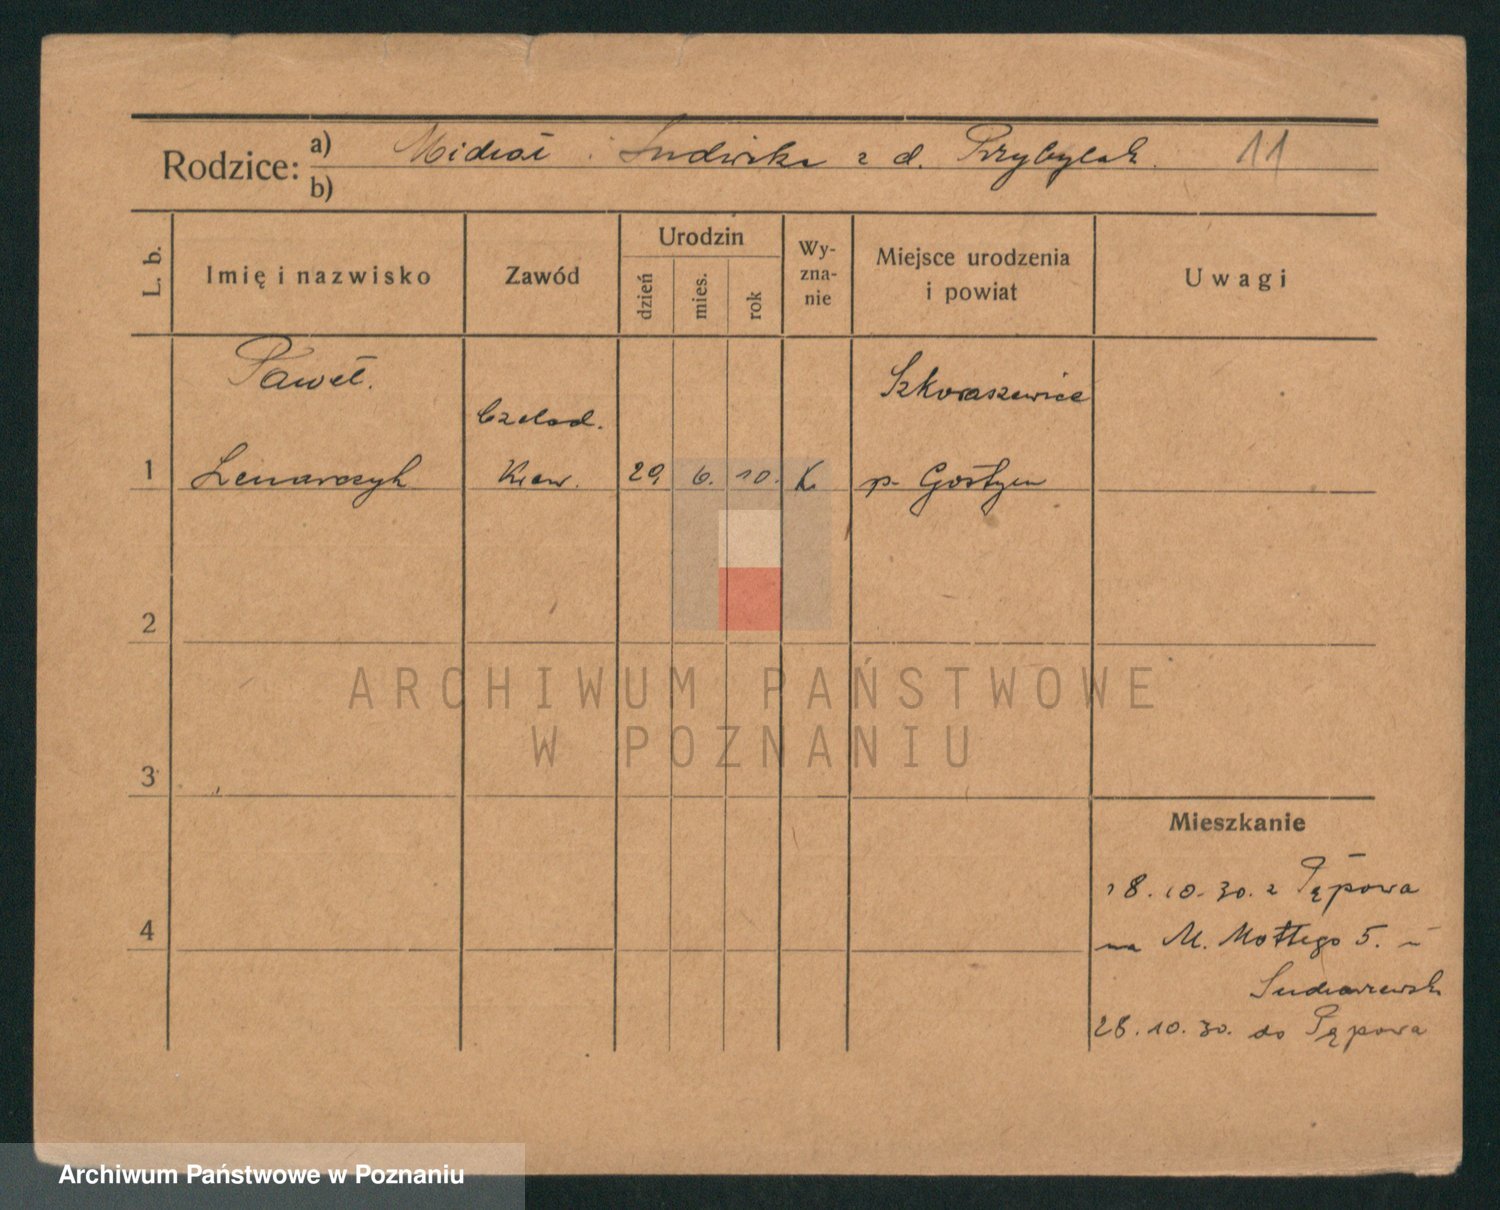 Rodzice: a) Michał i Ludwika z d. Przybylak. 11
b)
L. b.
Imię i nazwisko
Zawód
Urodzin
dzień
mies.
rok
Wy-
zna-
nie
Miejsce urodzenia
i powiat
Uwagi
Paweł.
Czelad.
Szkoraszewice
1 Lemarczyk Kraw. 29 6. 10. K. p. Gostyn
2
3
4
Mieszkanie
18.10.30. z Pępowa
na M. Mottego 5. u
28.10.30. do Pępowa
ARCHIWUM PAŃSTWOWE
W POZNANIU
Archiwum Państwowe w Poznaniu